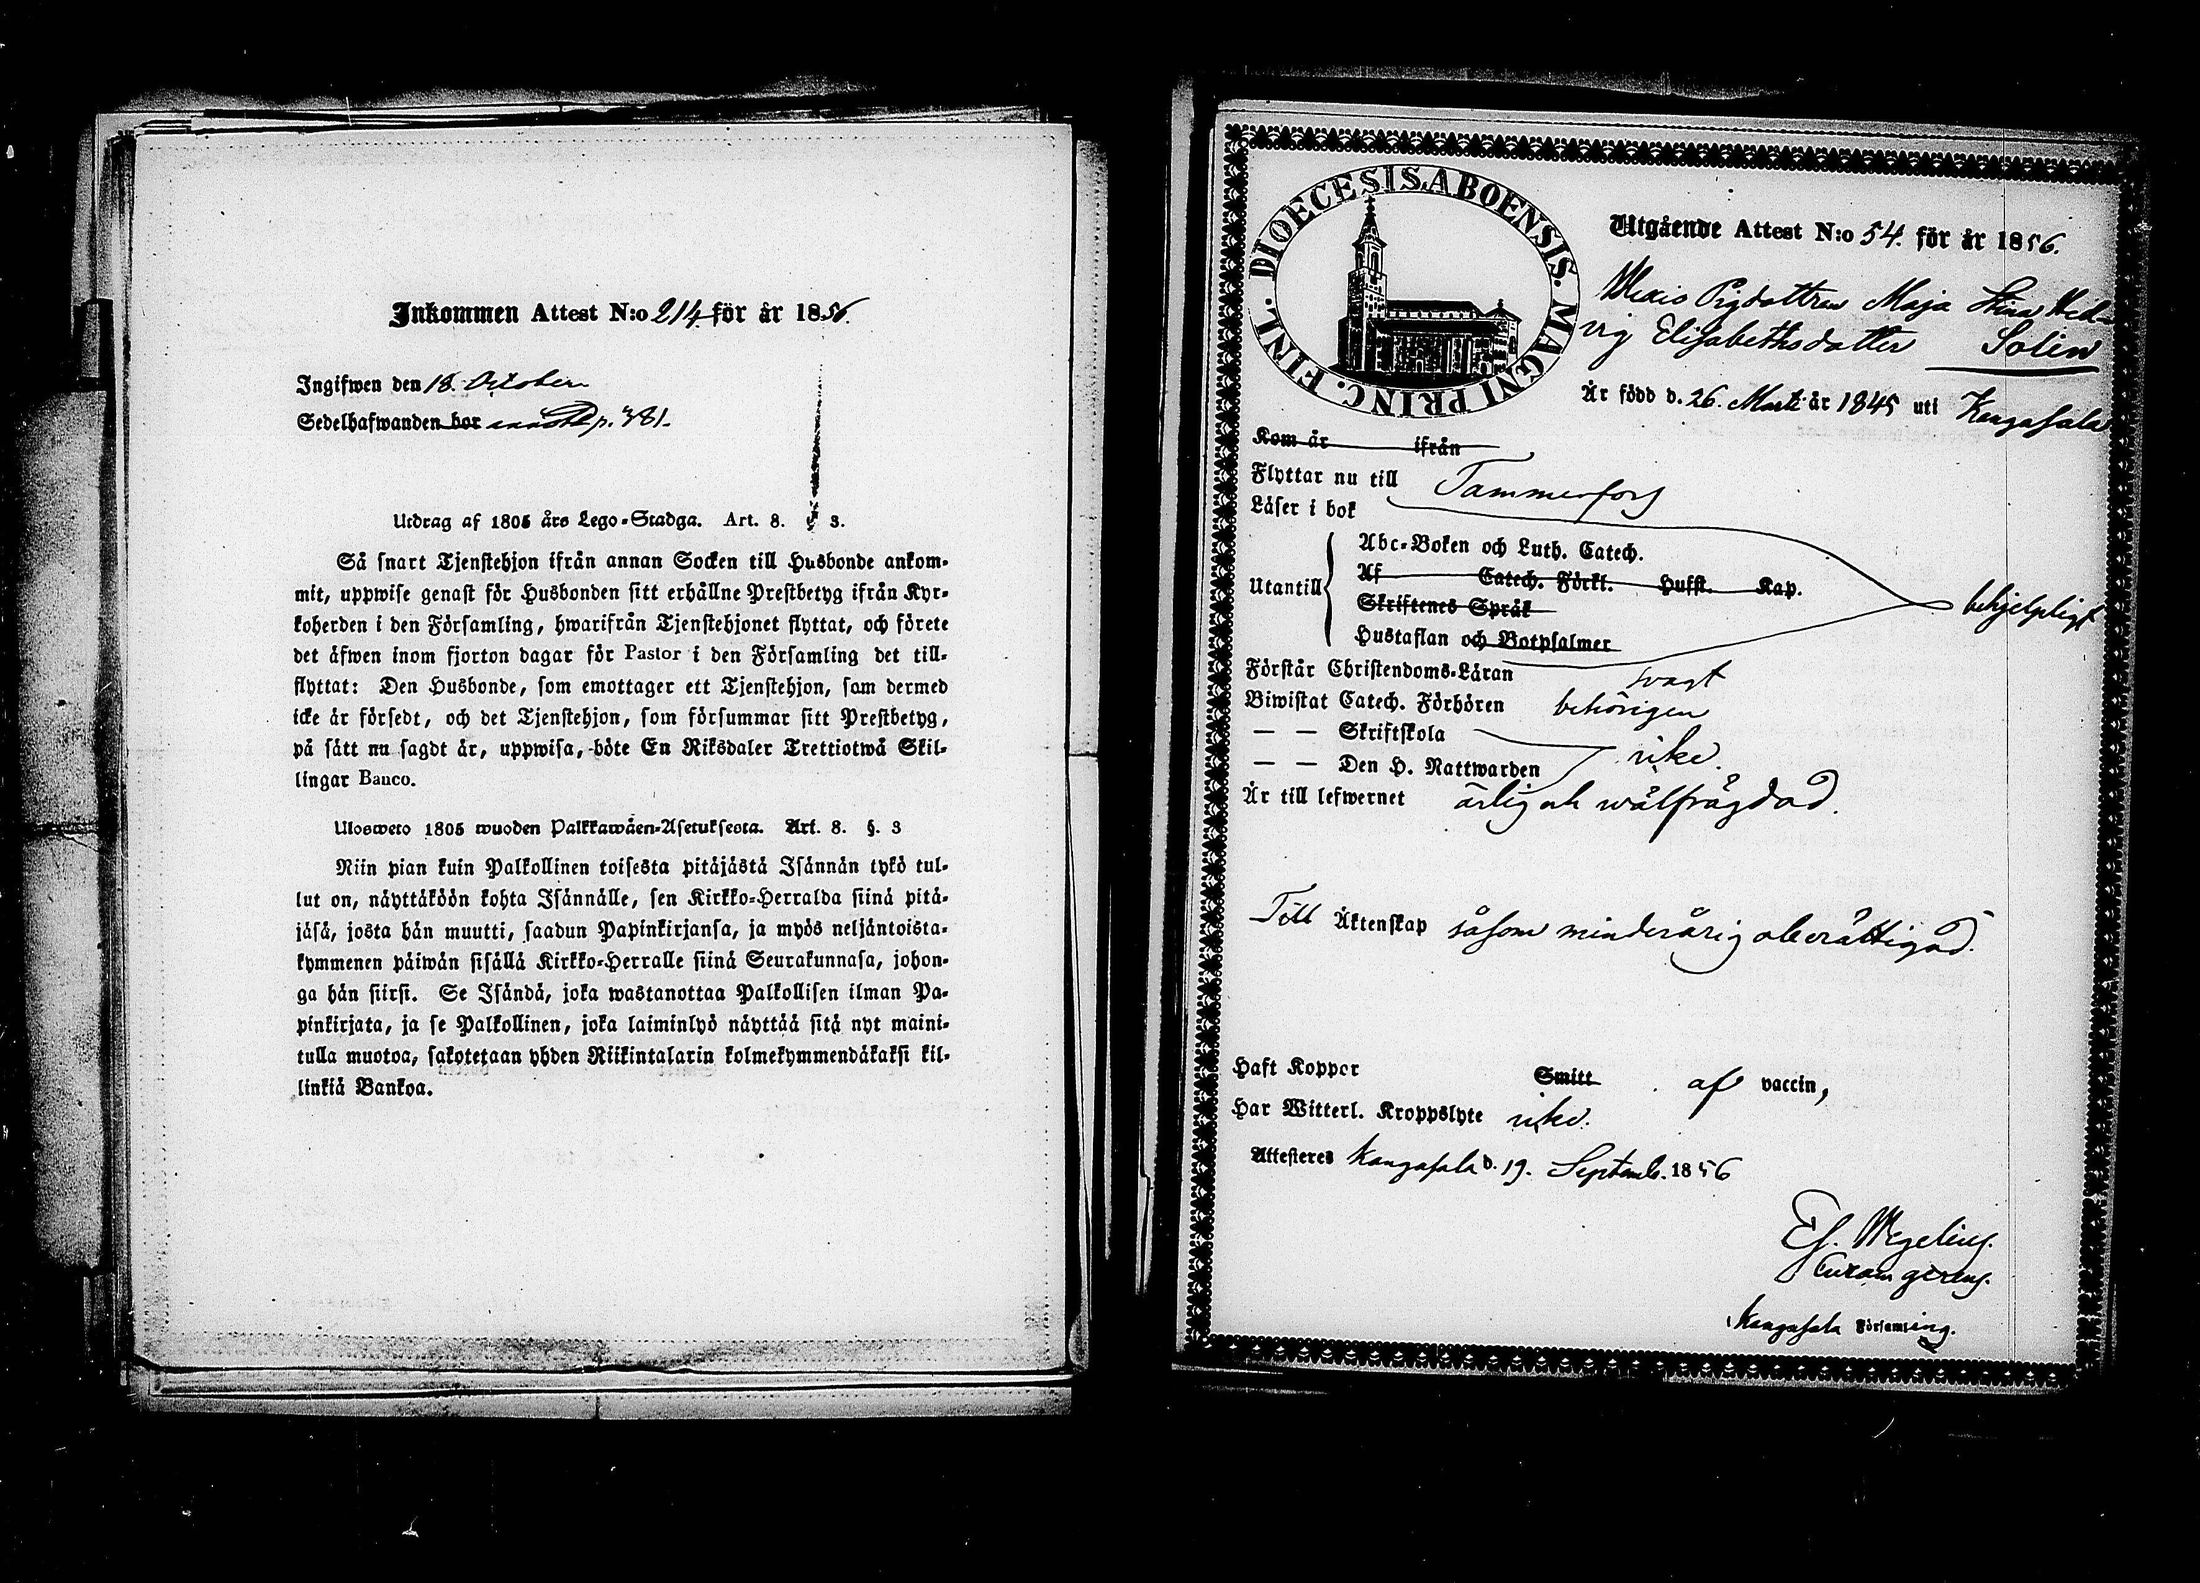 Inkommen Attest N:o 214. för år 1856.
Ingifwen den 18. October
Sedelhafwanden bor p. 381.
Utdrag af 1805 års Lego-Stadga. Art. 8. § 3.
Så snart Tjenstehjon ifrån annan Socken till Husbonde ankom-
mit, uppwise genast för Husbonden sitt erhållne Prestbetyg ifrån Kyr-
koherden i den Församling, hwarifrån Tjenstehjonet flyttat, och förete
det äfwen inom fjorton dagar för Pastor i den Församling det till-
flyttat: Den Husbonde, som emottager ett Tjenstehjon, som dermed
icke är försedt, och det Tjenstehjon, som försummar sitt Prestbetyg,
på sätt nu sagdt är, uppwisa, böte En Riksdaler Trettiotwå Skil-
lingar Banco.
Ulosweto 1805 wuoden Palkkawäen-Asetuksesta. Art. 8. §. 3
Niin pian kuin Palkollinen toisesta pitäjästä Isännän tykö tul-
lut on, näyttäköön kohta Isännälle, sen Kirkko-Herralda siinä pitä-
jäsä, josta hän muutti, saadun Papinkirjansa, ja myös neljäntoista-
kymmenen päiwän sisällä Kirkko-Herralle siinä Seurakunnasa, johon-
ga hän siirsi. Se Isändä, joka wastanottaa Palkollisen ilman Pa-
pinkirjata, ja se Palkollinen, joka laiminlyö näyttää sitä nyt maini-
tulla muotoa, sakotetaan yhden Riikintalarin kolmekymmendäkaksi kil-
linkiä Bankoa.
DIOECESIS. ABOENSIS. MAGNI PRINC. FINL.
Utgående Attest N:o 54. för år 1856.
Pigdottren Maja Stina Hed-
vig Elisabethsdotter Solin
Är född d. 26. Martii år 1845 uti Kangasala
Kom år ifrån
Flyttar nu till Tammerfors
Läser i bok
Utantill
Abc-Boken och Luth. Catech.
Af Catech. Förkl. Hufst. Kap.
Skriftenes Språk
Hustaflan och Botpsalmer
behjelpligt
Förstår Christendoms-Läran svagt
Biwistat Catech. Förhören behörigen
— — Skriftskola
— — Den H. Nattwarden icke.
Är till lefwernet ärlig och wälfrägdad.
Till Äktenskap såsom minderårig oberättigad.
Haft Koppor Smitt af vaccin,
Har Witterl. Kroppslyte icke.
Attesteres Kangasala d. 19. Septemb. 1856
Wegelius.
Curam gerens.
Kangasala Församling.